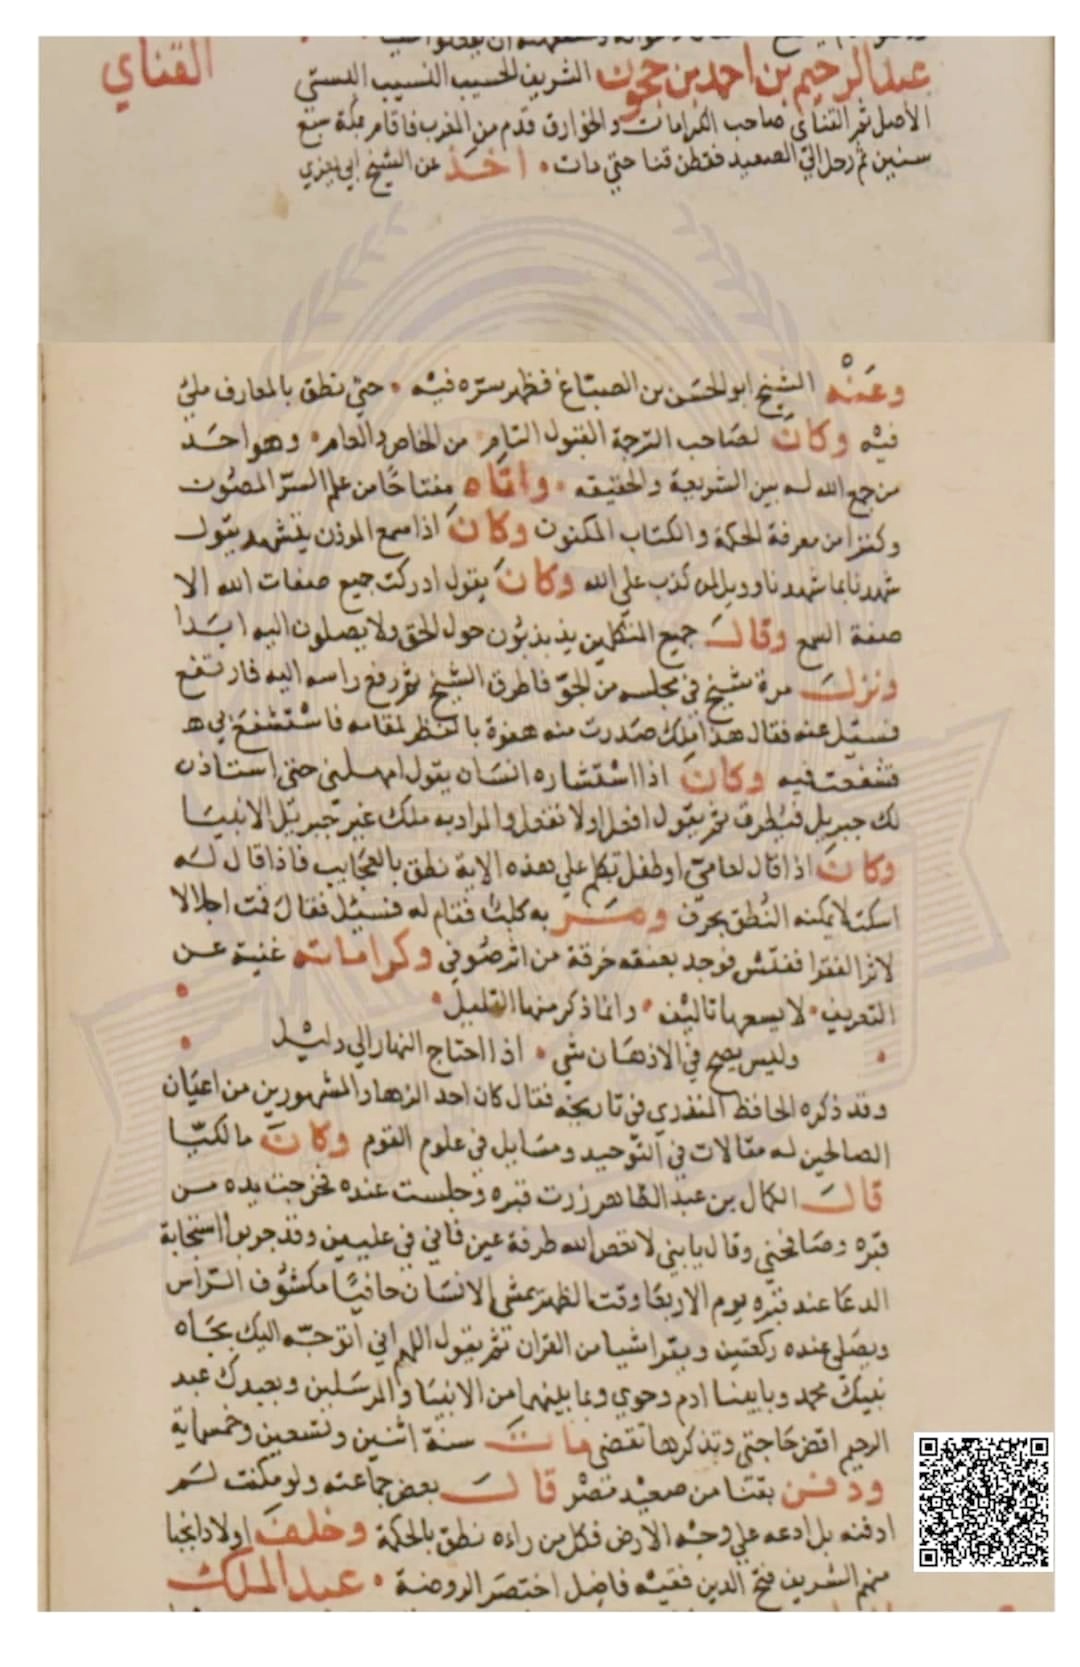 القناي
عبد الرحيم بن احمد بن حجون الشريف الحسيب النسيب السبتي
الأصل ثم القناى صاحب الكرامات والخوارق قدم من المغرب فاقام بمكة سبع
سنين ثم رحل الي الصعيد فقطن قنا حتي مات • اخذ عن الشيخ ابي يعزي
وعنه الشيخ ابو الحسن بن الصباغ فظهر سره فيه • حتي نطق بالمعارف ملئ
فيه وكان لصاحب الترجمة القبول التام • من الخاص والعام • وهو احد
من جمع الله له بين الشريعة والحقيقه • واتاه مفتاحًا من علم السر المصون
وكنزا من معرفة الحكمة والكتاب المكنون وكان اذا سمع الموذن يتشهد يقول
شهدنا بما شهدنا وويل لمن كذب علي الله وكان يقول ادركت جميع صفات الله الا
صفة السمع وقال جميع المتكلمين يذبذبون حول الحق ولا يصلون اليه ابدا
ونزل مرة شبخ في مجلسه من الجو فاطرق الشيخ ثم رفع راسه اليه فارتفع
فسئل عنه فقال هذا ملك صدرت منه هفوة بالنظر لمقامه فاستشفع بي
فشفعت فيه وكان اذا استشاره انسان يقول امهلني حتي استاذن
لك جبريل فيطرق ثم يقول افعل او لا تفعل والمراد به ملك غير جبريل الانبيا
وكان اذا قال لعامي او طفل تكلم علي هذه الاية نطق بالعجايب فاذا قال له
اسكت لا يمكنه النطق بحرف ومر به كلب فقام له فسئل فقال قمت اجلالا
لاثر الفقرا ففتش فوجد بعنقه خرقة من اثر صوفي وكراماته غنية عن
التعريف • لا يسعها تاليف • وانما ذكر منها القليل •
وليس يصح في الاذهان شي • اذا احتاج النهار الي دليل
وقد ذكره الحافظ المنذري في تاريخه فقال كان احد الزهاد المشهورين من اعيان
الصالحين له مقالات في التوحيد ومسايل في علوم القوم وكان مالكيا
قال الكمال بن عبد الظاهر زرت قبره وجلست عنده فخرجت يده من
قبره وصافحني وقال يا بني لا تعص الله طرفة عين فاني في عليين وقد جربوا استجابة
الدعا عند قبره يوم الاربعا وقت الظهر يمشي الانسان حافيا مكشوف الراس
ويصلي عنده ركعتين ويقرا شيا من القران ثم يقول اللهم اني اتوجه اليك بجاه
نبيك محمد وبابينا ادم وحوي وما بينهما من الانبيا والمرسلين وبعبدك عبد
الرحيم اقض حاجتي وتذكرها تقضي مات سنة اثنين وتسعين وخمسماية
ودفن بقنا من صعيد مصر قال بعض جماعته ولو مكنت لم
ادفنه بل ادعه علي وجه الارض فكل من راه نطق بالحكمة وخلف اولادا نجبا
منهم الشريف فتح الدين فقيه فاضل اختصر الروضة • عبد الملك